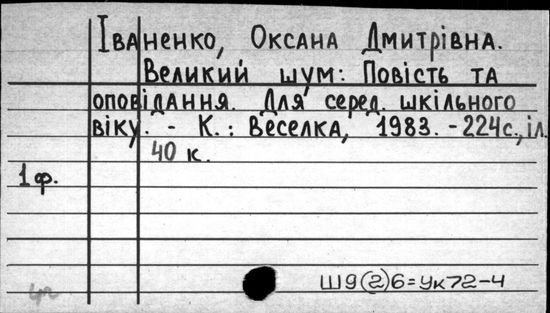 Іваненко, Оксана Дмитрівна.
Великий шум: Повість та
оповідання. Для серед. шкільного
віку. - К.: Веселка, 1983. - 224с., іл.
40 к.
1 ф.
Ш9(2)6=Ук72-4